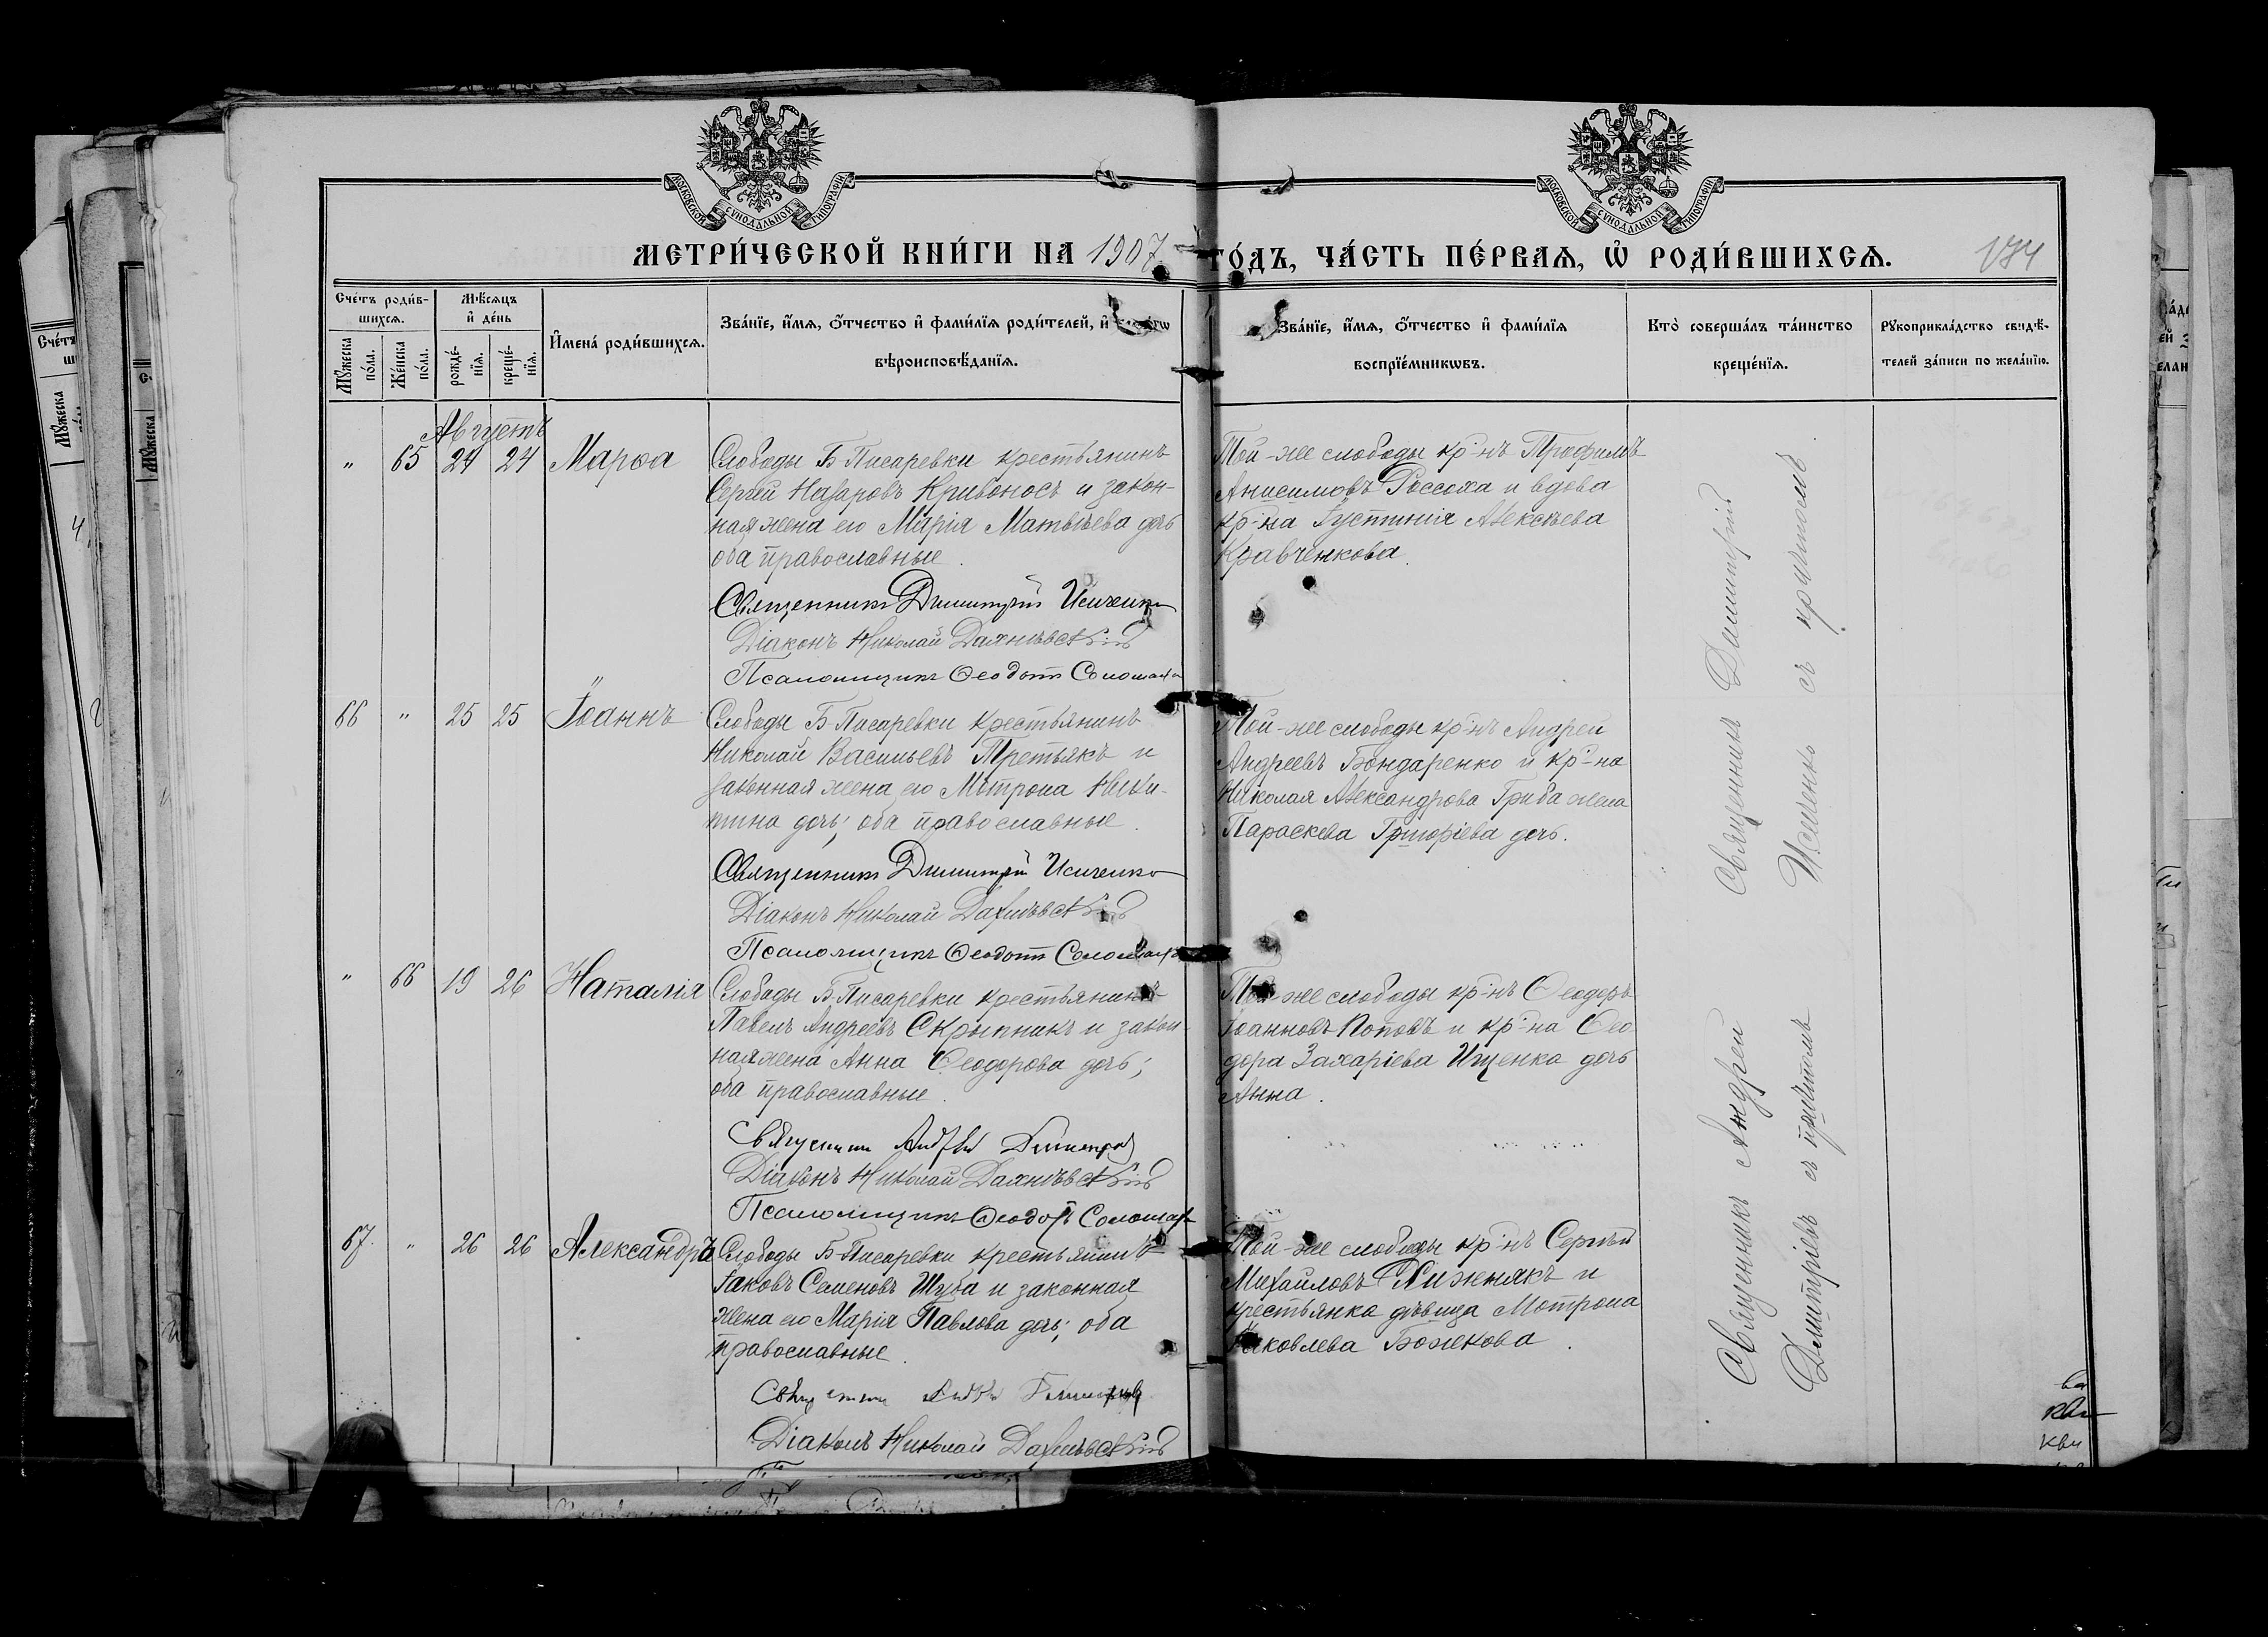 МОСКОВСКОЙ СУНОДАЛЬНОЙ ТИПОГРАФІИ
МОСКОВСКОЙ СУНОДАЛЬНОЙ ТИПОГРАФІИ
МЕТРИ́ЧЕСКОЙ КНИ́ГИ НА 1907 ГО́ДЪ, ЧА́СТЬ ПЕ́РВАѦ, Ѡ҆ РОДИ́ВШИХСѦ.
Сче́тъ роди́в-
шихсѧ.
Мꙋ́жеска по́ла.
Же́нска по́ла.
Мѣ́сѧцъ
и҆ де́нь
рожде́-
нїѧ.
креще́-
нїѧ.
И҆мена́ роди́вшихсѧ.
Зва́нїе, и҆́мѧ, ѻ҆́тчество и҆ фами́лїѧ роди́телей, и҆
вѣроисповѣ́данїѧ.
Зва́нїе, и҆́мѧ, ѻ҆́тчество и҆ фами́лїѧ
воспрїе́мникѡвъ.
Кто̀ соверша́лъ та́инство
креще́нїѧ.
Рꙋкоприкла́дство свидѣ́-
телей за́писи по жела́нїю.
Августъ
" 65 24 24 Марѳа
Слободы Б-Писаревки крестьянинъ
Сергій Назаровъ Кривоносъ и закон-
ная жена его Марія Матвѣева дочь
оба православные.
Священникъ Димитрій Исиченко
Діаконъ Николай
Псаломщикъ Ѳеодотъ Соломаха
Той-же слободы кр-нъ Трофимъ
Анисимовъ Россоха и вдова
кр-на Іустинія Алексѣева
Кравченкова.
66 " 25 25 Іоаннъ
Слободы Б-Писаревки крестьянинъ
Николай Васильевъ Третьякъ и
законная жена его Мотрона Ники-
тина дочь; оба православные.
Священникъ Димитрій Исиченко
Діаконъ Николай
Псаломщикъ Ѳеодотъ Соломаха
Той-же слободы кр-нъ Андрей
Андреевъ Бондаренко и кр-на
Николая Александрова Гриба жена
Параскева Григоріева дочь.
" 66 19 26 Наталія
Слободы Б-Писаревки крестьянинъ
Павелъ Андреевъ Скрыпникъ и закон-
ная жена Анна Ѳеодорова дочь;
оба православные.
Священникъ Андрей Димитріевъ
Діаконъ Николай
Псаломщикъ Ѳеодотъ Соломаха
Той-же слободы кр-нъ Ѳеодоръ
Іоанновъ Поповъ и кр-на Ѳео-
дора Захаріева Ищенка дочь
Анна.
67. " 26 26 Александръ
Слободы Б-Писаревки крестьянинъ
Іаковъ Семеновъ Шуба и законная
жена его Марія Павлова дочь; оба
православные.
Священникъ Андрей Димитріевъ
Діаконъ Николай
Той-же слободы кр-нъ Сергѣй
Михайловъ Нижнякъ и
крестьянка дѣвица Мотрона
Яковлева Боженова.
Священникъ Димитрій
Исиченко съ причтомъ
Священникъ Андрей
Димитріевъ съ причтомъ